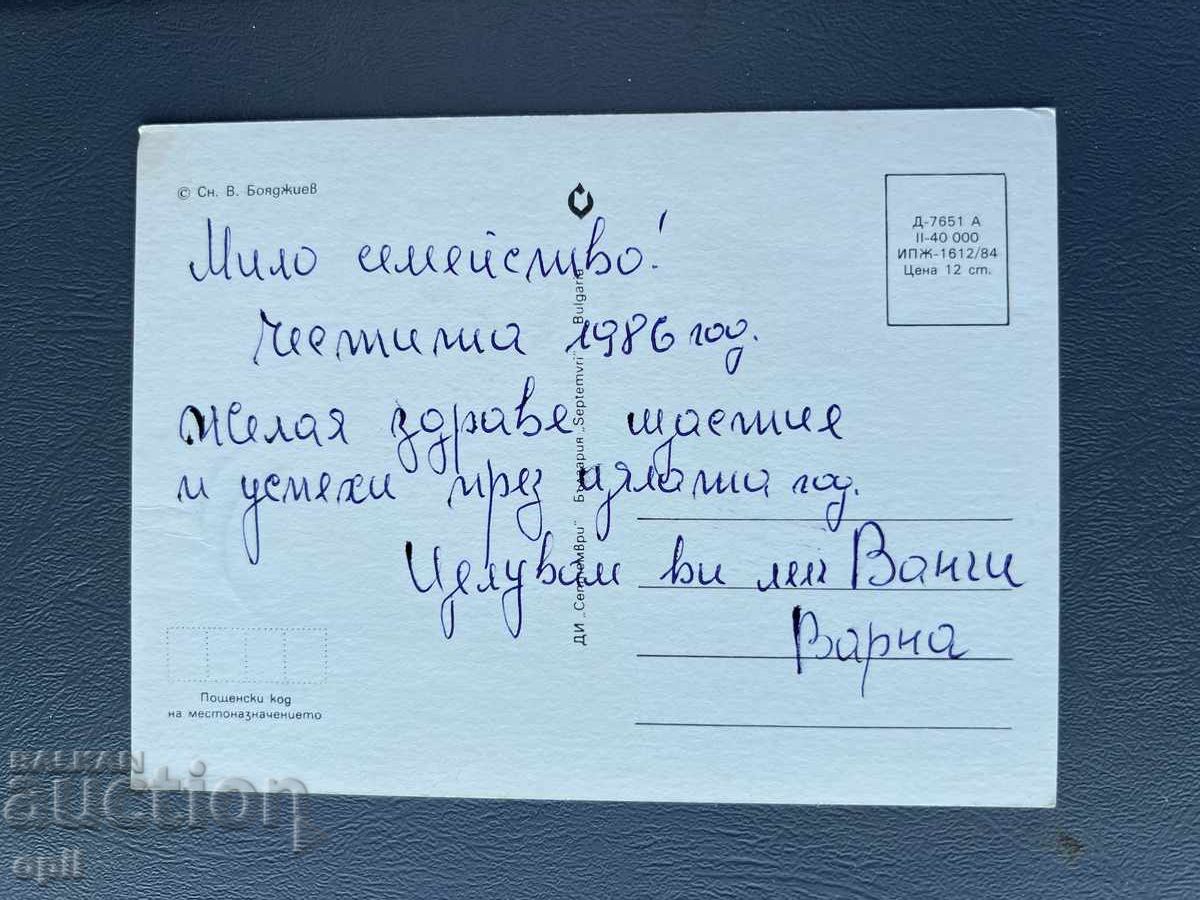 © Сн. В. Бояджиев
Д-7651 А
II-40 000
ИПЖ-1612/84
Цена 12 ст.
Мило семейство!
Честита 1986 год.
Желая здраве щастие
и успехи през цялата год.
Целувам ви Ванги
Варна
ДИ „Септември" България „Septemvri" Bulgaria
Пощенски код
на местоназначението
BALKAN
auction
opll